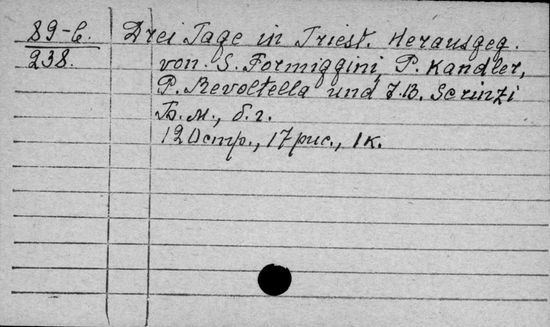 89-б. Drei Tage in Triest. Herausgeg.
238. von S. Formiggini, P. Kandler,
P. Revoltella und J.B. Scrinzi
Б.м., б.г.
120стр., 17рис., 1к.